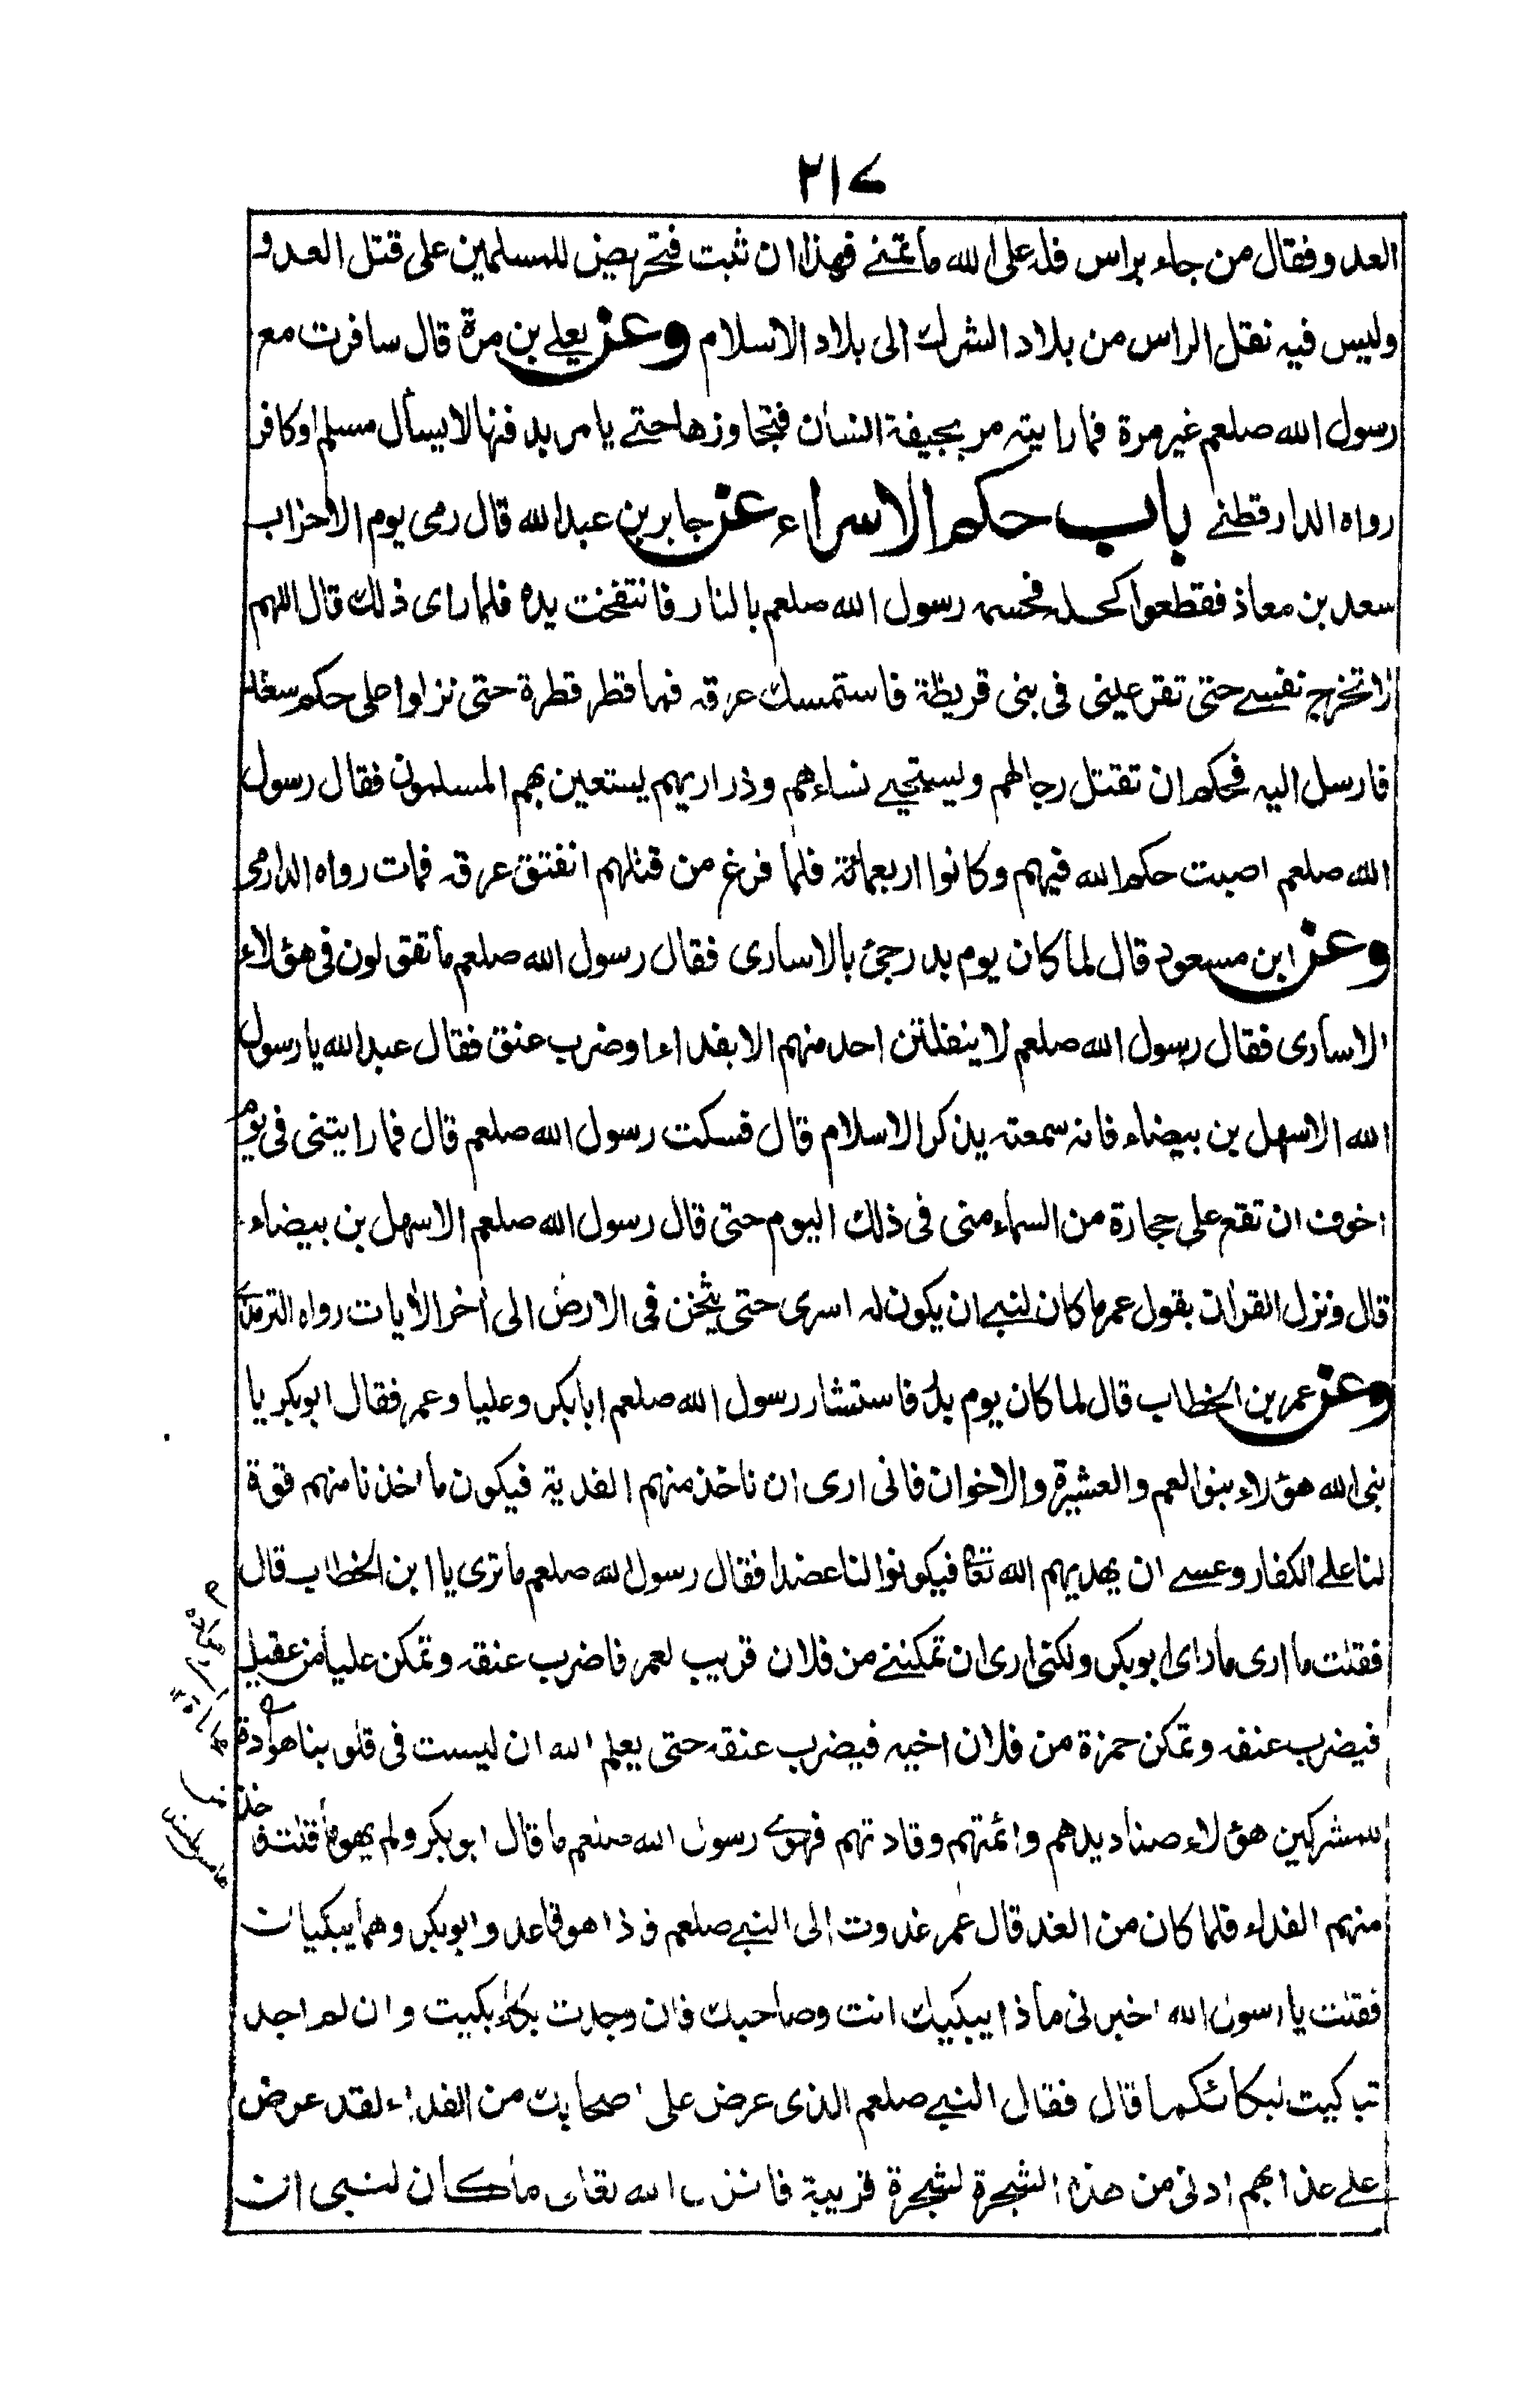 ٢١٧
العدو فقال من جاء براس فله على الله ما تمنى فهذا ان ثبت فتحريض للمسلمين على قتل العدو
وليس فيه نقل الراس من بلاد الشرك الى بلاد الاسلام وعن يعلى بن مرة قال سافرت مع
رسول الله صلعم غير مرة فما رايته مر بجيفة انسان فتجاوزها حتى يامر بدفنها لا يسأل مسلم او كافر
رواه الدارقطني باب حكم الاسراء عن جابر بن عبد الله قال رمى يوم الاحزاب
سعد بن معاذ فقطعوا اكحله فحسمه رسول الله صلعم بالنار فانتفخت يده فلما راى ذلك قال اللهم
لا تخرج نفسي حتى تقر عيني في بني قريظة فاستمسك عرقه فما قطر قطرة حتى نزلوا على حكم سعد
فارسل اليه فحكم ان تقتل رجالهم ويستحيي نساءهم وذراريهم يستعين بهم المسلمون فقال رسول
الله صلعم اصبت حكم الله فيهم وكانوا اربعمائة فلما فرغ من قتلهم انفتق عرقه فمات رواه الدارمي
وعن ابن مسعود قال لما كان يوم بدر جئ بالاسارى فقال رسول الله صلعم ما تقولون في هؤلاء
الاسارى فقال رسول الله صلعم لا ينفلتن احد منهم الا بفداء او ضرب عنق فقال عبد الله يا رسول
الله الا سهل بن بيضاء فانه سمعته يذكر الاسلام قال فسكت رسول الله صلعم قال فما رايتني في يوم
اخوف ان تقع على حجارة من السماء مني في ذلك اليوم حتى قال رسول الله صلعم الا سهل بن بيضاء
قال ونزل القران بقول عمر ما كان لنبي ان يكون له اسرى حتى يثخن في الارض الى اخر الأيات رواه الترمذي
وعن عمر بن الخطاب قال لما كان يوم بدر فاستشار رسول الله صلعم ابا بكر وعليا وعمر فقال ابو بكر يا
نبي الله هؤلاء بنو العم والعشيرة والاخوان فاني ارى ان ناخذ منهم الفدية فيكون ما اخذنا منهم قوة
لنا على الكفار وعسى ان يهديهم الله تعا فيكونوا لنا عضدا فقال رسول الله صلعم ما ترى يا ابن الخطاب قال
فقلت ما ارى ما راى ابو بكر ولكني ارى ان تمكنني من فلان قريب لعمر فاضرب عنقه وتمكن عليا من عقيل
فيضرب عنقه وتمكن حمزة من فلان اخيه فيضرب عنقه حتى يعلم الله ان ليست في قلوبنا هوادة
للمشركين هؤلاء صناديدهم وائمتهم وقادتهم فهوى رسول الله صلعم ما قال ابو بكر ولم يهو ما قلت فاخذ
منهم الفداء فلما كان من الغد قال عمر غدوت الى النبي صلعم فاذا هو قاعد وابو بكر وهما يبكيان
فقلت يا رسول الله اخبرني ما ذا يبكيك انت وصاحبك فان وجدت بكاء بكيت وان لم اجد
تباكيت لبكائكما قال فقال النبي صلعم الذي عرض على اصحابك من الفداء لقد عرض
على عذابهم ادنى من هذه الشجرة لشجرة قريبة فانزل الله تعالى ما كان لنبي ان